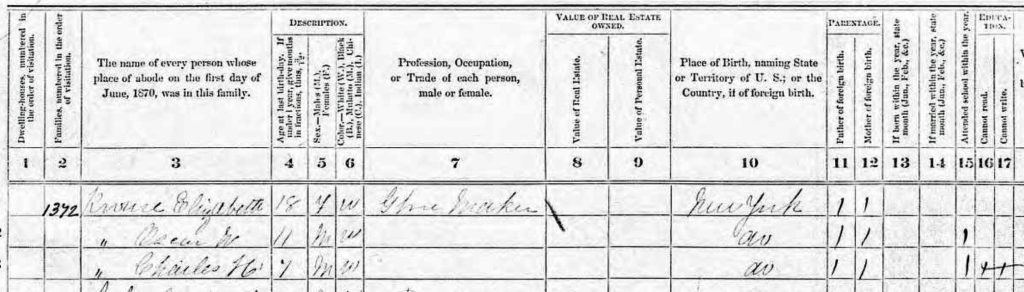 DESCRIPTION.
VALUE OF REAL ESTATE OWNED.
PARENTAGE.
EDUCATION.
Dwelling-houses, numbered in the order of visitation.
Families, numbered in the order of visitation.
The name of every person whose place of abode on the first day of June, 1870, was in this family.
Age at last birth-day. If under 1 year, give months in fractions, thus,
Sex.—Males (M.), Females (F.)
Color.—White (W.), Black (B.), Mulatto (M.), Chinese (C.), Indian (I.)
Profession, Occupation, or Trade of each person, male or female.
Value of Real Estate.
Value of Personal Estate.
Place of Birth, naming State or Territory of U. S.; or the Country, if of foreign birth.
Father of foreign birth.
Mother of foreign birth.
If born within the year, state month (Jan., Feb., &c.)
If married within the year, state month (Jan., Feb., &c.)
Attended school within the year.
Cannot read.
Cannot write.
1 2 3 4 5 6 7 8 9 10 11 12 13 14 15 16 17
1372 Elizabeth 18 F W Glove Maker New York 1 1
" Oscar W 11 M W do 1 1 1
" Charles 7 M W do 1 1 1